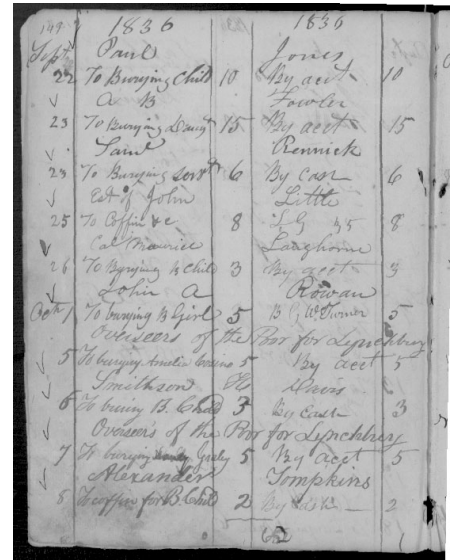 149 1836 1836
Sept Paul Jones
22 To Burying Child 10 By acct 10
A B Fowler
23 To Burying Daug 15 By acct 15
Saml Rennick
23 To Burying servt 6 By cash 6
Est of John Little
25 To Coffin &c 8 8
Maurice Langhorne
26 To Burying B Child 3 By acct 3
John A Rowan
Octr 1 To burying B Girl 5 B G W Turner 5
Overseers of the Poor for Lynchburg
5 To burying Amelia 5 By acct 5
Smithson H Davis
6 To buriny B. Child 3 By Cash 3
Overseers of the Poor for Lynchburg
7 To burying 5 By acct 5
Alexander Tompkins
8 To coffin for B Child 2 By cash 2
62